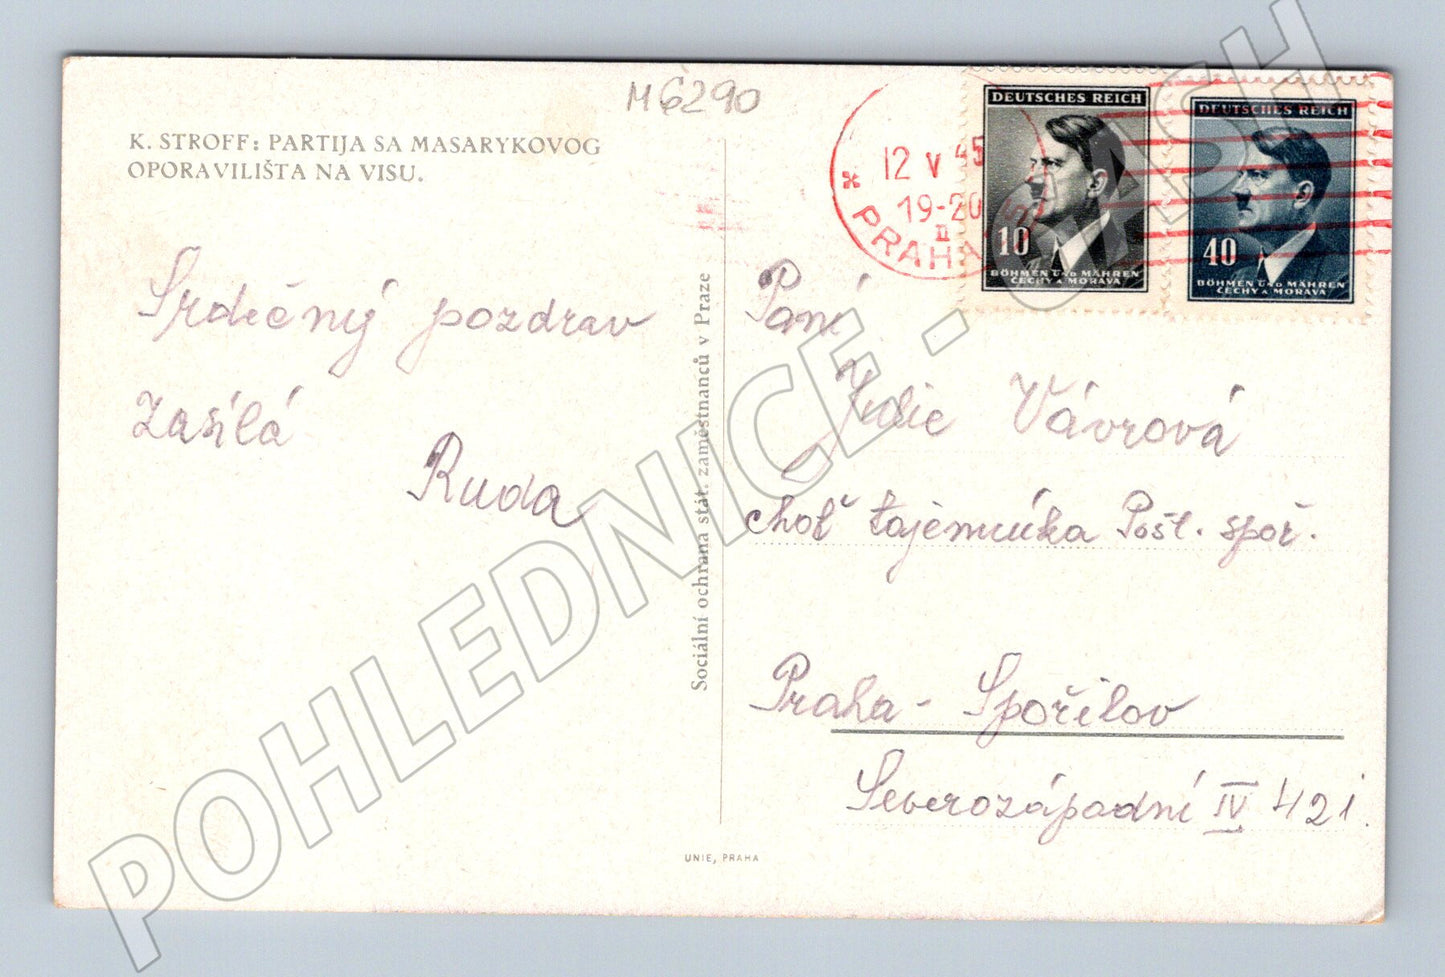 M 6290
K. STROFF: PARTIJA SA MASARYKOVOG
OPORAVILIŠTA NA VISU.
Srdečný pozdrav
zasílá
Ruda
Sociální ochrana stát. zaměstnanců v Praze
UNIE, PRAHA
12 V 45
19-20
II
* PRAHA
DEUTSCHES REICH
10
BÖHMEN UND MÄHREN
ČECHY A MORAVA
DEUTSCHES REICH
40
BÖHMEN UND MÄHREN
ČECHY A MORAVA
Paní
Julie Vávrová
choť tajemníka Pošt. spoř.
Praha - Spořilov
Severozápadní IV 421
POHLEDNICE - CASH